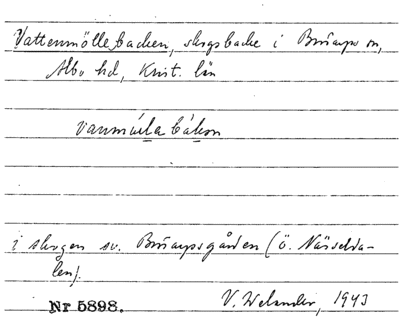 Vattenmöllebacken, skogsbacke i Brösarps sn,
Albo hd, Krist. län
vanmöila bákan
i skogen sv. Brösarpsgården (ö. Nässelda-
len).
Nr 5898. V. Welander, 1943